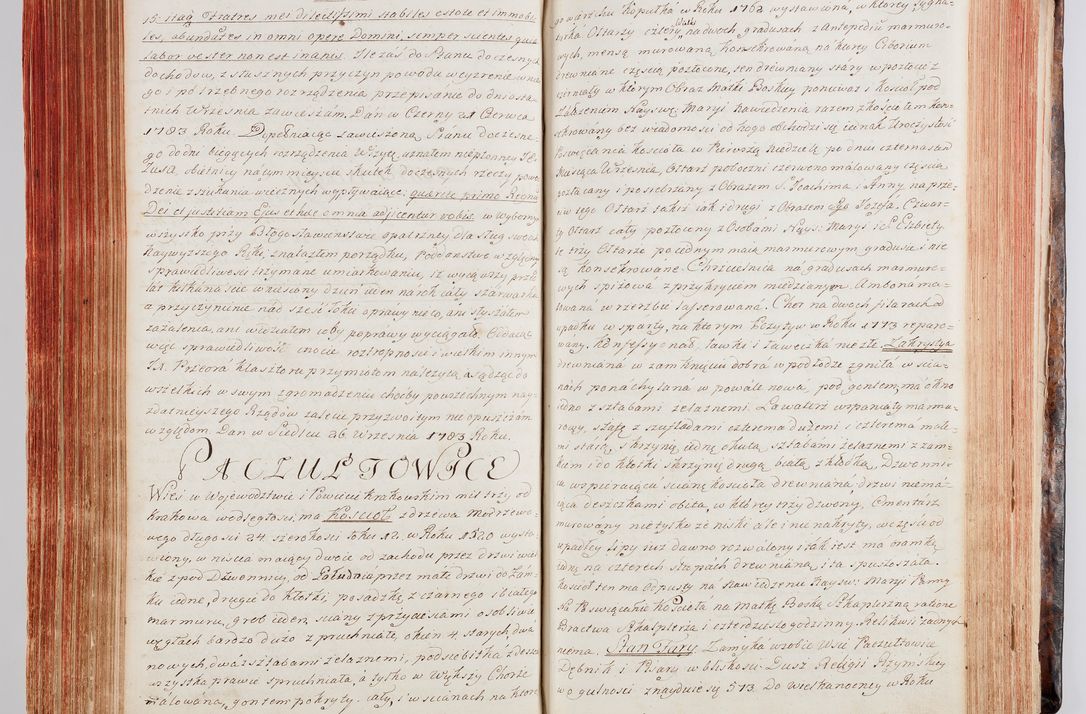 15. itaq Fratres mei dilectissimi stabiles estote et immobi=
les, abundates in omni opere Domini, semper scientes quia
labor vester non est inanis. Nezaś do Stanu doczesnych
dochodow, z słusznych przyczyn powodu weyzrenie w nie
go i potrzebnego rozrządzenia przepisanie do dni osta=
tnich Września zawieszam. Dan w Czerny 21 Czerwca
1783 Roku. Dopełniaiąc zawieszoną Stanu doczesne
go do dni bieżących rozrządzenia Wizytę uznałem niepłonney JE
ZUSA obietnicy na tym mieyscu skutek doczesnych rzeczy powo
dzenie z szukania wiecznych wypływaiące: quærite primo Regnũ
Dei et justitiam Ejus et hæc omnia adjicientur vobis w Wyborney
wszystko przy Błogosławienstwie opatrzney dla sług swoich
Naywyższego Ręki, znalazłem porządku, Poddanstwo względem
sprawiedliwości trzymane umiarkowaniu, iż więcey przez
lat kilkanascie wniesiony dzień ieden na rok cały szarwarku
a przyczynienie nad sześć łoku oprawy nic o, ani słyszałem
zażalenia, ani widziałem coby poprawy wyciągało. Oddaiąc
więc sprawiedliwość cnocie roztropności i wielkim innym
X. Przeora klasztoru przymiotom należytą, a sądząc do
wszelkich w swym zgromadzeniu choćby powszechnym nay=
zdatnieyszego Rządów zalecić przyzwoitym nie opuszczam
względom. Dan w Siedlcu 26 Września 1783 Roku.
PACZULTOWICE
Wieś w Województwie i Powiecie Krakowskim mil trzy od
Krakowa w odległości, ma Kościoł z drzewa Modrzewo=
wego długości 24 szerokości łokci 12. w Roku 1520 wysta=
wiony, wniścia maiący dwoie od zachodu przez drzwi wiel
kie z pod Dzwonnicy, od Południa przez małe drzwi od Zam=
ku iedne, drugie do kłotki posadzkę z czarnego i białego
marmuru, grob ieden, sciany z przyciesiami osobliwie
węgłach bardzo dużo z pruchniałe, okien 4. starych, dwa
nowych, dwa z sztabami żelaznemi, podsiebitka z desek
wszystka prawie spruchniała, a tylko w Większy Chorze
malowana, gontem pokryty cały, i w scianach na które
gwarzchu kopułka w Roku 1762 wystawiona, w którey sygna=
turka. Ołtarzy cztery, Wielki na dwoch gradusach z Antepedią marmuro=
wych, mensą murowaną, konsekrowaną na który Ciborium
drewniane częścią pozłocone, ten drewniany stary w pozłocie z
czerniały w którym Obraz Matki Boskiey ponieważ i Kościoł pod
założenim Nayswę: Maryi Nawiedzenia razem z kościołem kon=
sekrowany bez wiadomości od kogo obchodzi się iednak Uroczystość
Poswięcania Kościoła w Pierwszą Niedzielę po dniu czternastam
Miesiąca Września, Ołtarz poboczni czerwono malowany częścią
pozłacany i posiebrzany z Obrazem S. Joachima i Anny na prze=
ciw tego Ołtarz takiż iak i drugi z Obrazem Sgo Jozefa. Czwar=
ty Ołtarz cały pozłocony z Osobami Nayś: Maryi i S. Elzbiety
te trzy Ołtarze po iednym maią marmurowym gradusie i nie
są konsekrowane. Chrzcielnica na gradusach marmuro=
wych spiżowa z przykryciem miedzianym. Ambona ma=
lowana w rzezbie laserowana. Chor na dwoch filarach od
upadku wsparty, na którym Pozytyw w Roku 1773 reparo=
wany, konfessyonał, ławki i ławeczka niezłe. Zakrystya
drewniana w zamknięciu dobra w podłodze zgniła w scia=
nach ponachylana w powale nowa, pod gontem, ma okno
iedno z sztabami żelaznemi. Lawaterz wspaniały marmu=
rowy, szafę z szufladami czterema dużemi i czterema małe=
mi starą, skrzynię iednę okutą sztabami żelaznemi z zam=
kiem i do kłotki skrzynię drugą białą z kłodką, Dzwonni=
ca wspieraiąca scianę kościoła drewniana drzwi niema=
iąca deszczkami obita, w którey trzy dzwony, Cmentarz
murowany nietylko że niski ale i nie nakryty, w części od
upadłey lipy iuż dawno rozwalony i tak iest ma bramkę
iednę na czterech słupach drewnianą, i ta spustoszała.
Kościół ten ma Odpusty na Nawiedzenie Nayśw: Maryi Panny
Na Poswięcanie Kościoła na Matkę Boską Szkaplerzną ratione
Bractwa Szkaplerza i czterdziestogodzinny. Relikwii żadnych
niema. Stan Fary Zamyka w sobie Wsie Paczułtowice
Dębnik i Pisary w bliskości. Dusz Religii Rzymskiey
w ogulności znayduie się 573. Do wielkanocney w Roku